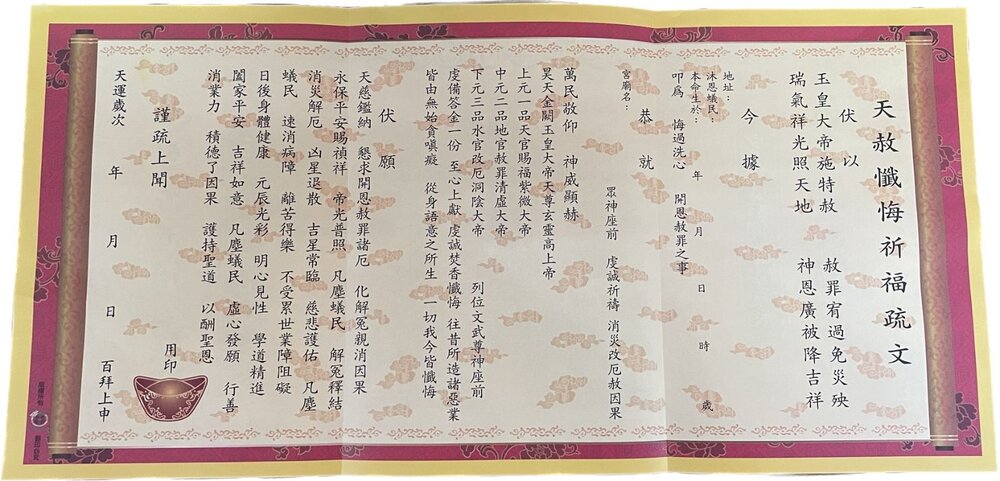 天赦懺悔祈福疏文
伏以
玉皇大帝施特赦　赦罪宥過免災殃
瑞氣祥光照天地　神恩廣被降吉祥
今據
地址：
沐恩蟻民：
本命生於：　年　月　日　時　歲
叩為　悔過洗心　開恩赦罪之事
恭就
宮廟名：　眾神座前　虔誠祈禱 消災改厄赦因果
萬民敬仰　神威顯赫
昊天金闕玉皇大帝天尊玄靈高上帝
上元一品天官賜福紫微大帝
中元二品地官赦罪清虛大帝
下元三品水官改厄洞陰大帝　列位文武尊神座前
虔備答金一份 至心上獻 虔誠焚香懺悔 往昔所造諸惡業
皆由無始貪嗔癡　從身語意之所生　一切我今皆懺悔
伏願
天慈鑑納　懇求開恩赦罪諸厄　化解冤親消因果
永保平安賜禎祥　帝光普照　凡塵蟻民　解冤釋結
消災解厄　凶星退散　吉星常臨　慈悲護佑　凡塵
蟻民　速消病障　離苦得樂　不受累世業障阻礙
日後身體健康　元辰光彩　明心見性　學道精進
闔家平安　吉祥如意　凡塵蟻民　虛心發願　行善
消業力　積德了因果　護持聖道　以酬聖恩
謹疏上聞
用印
天運歲次　年　月　日　百拜上申